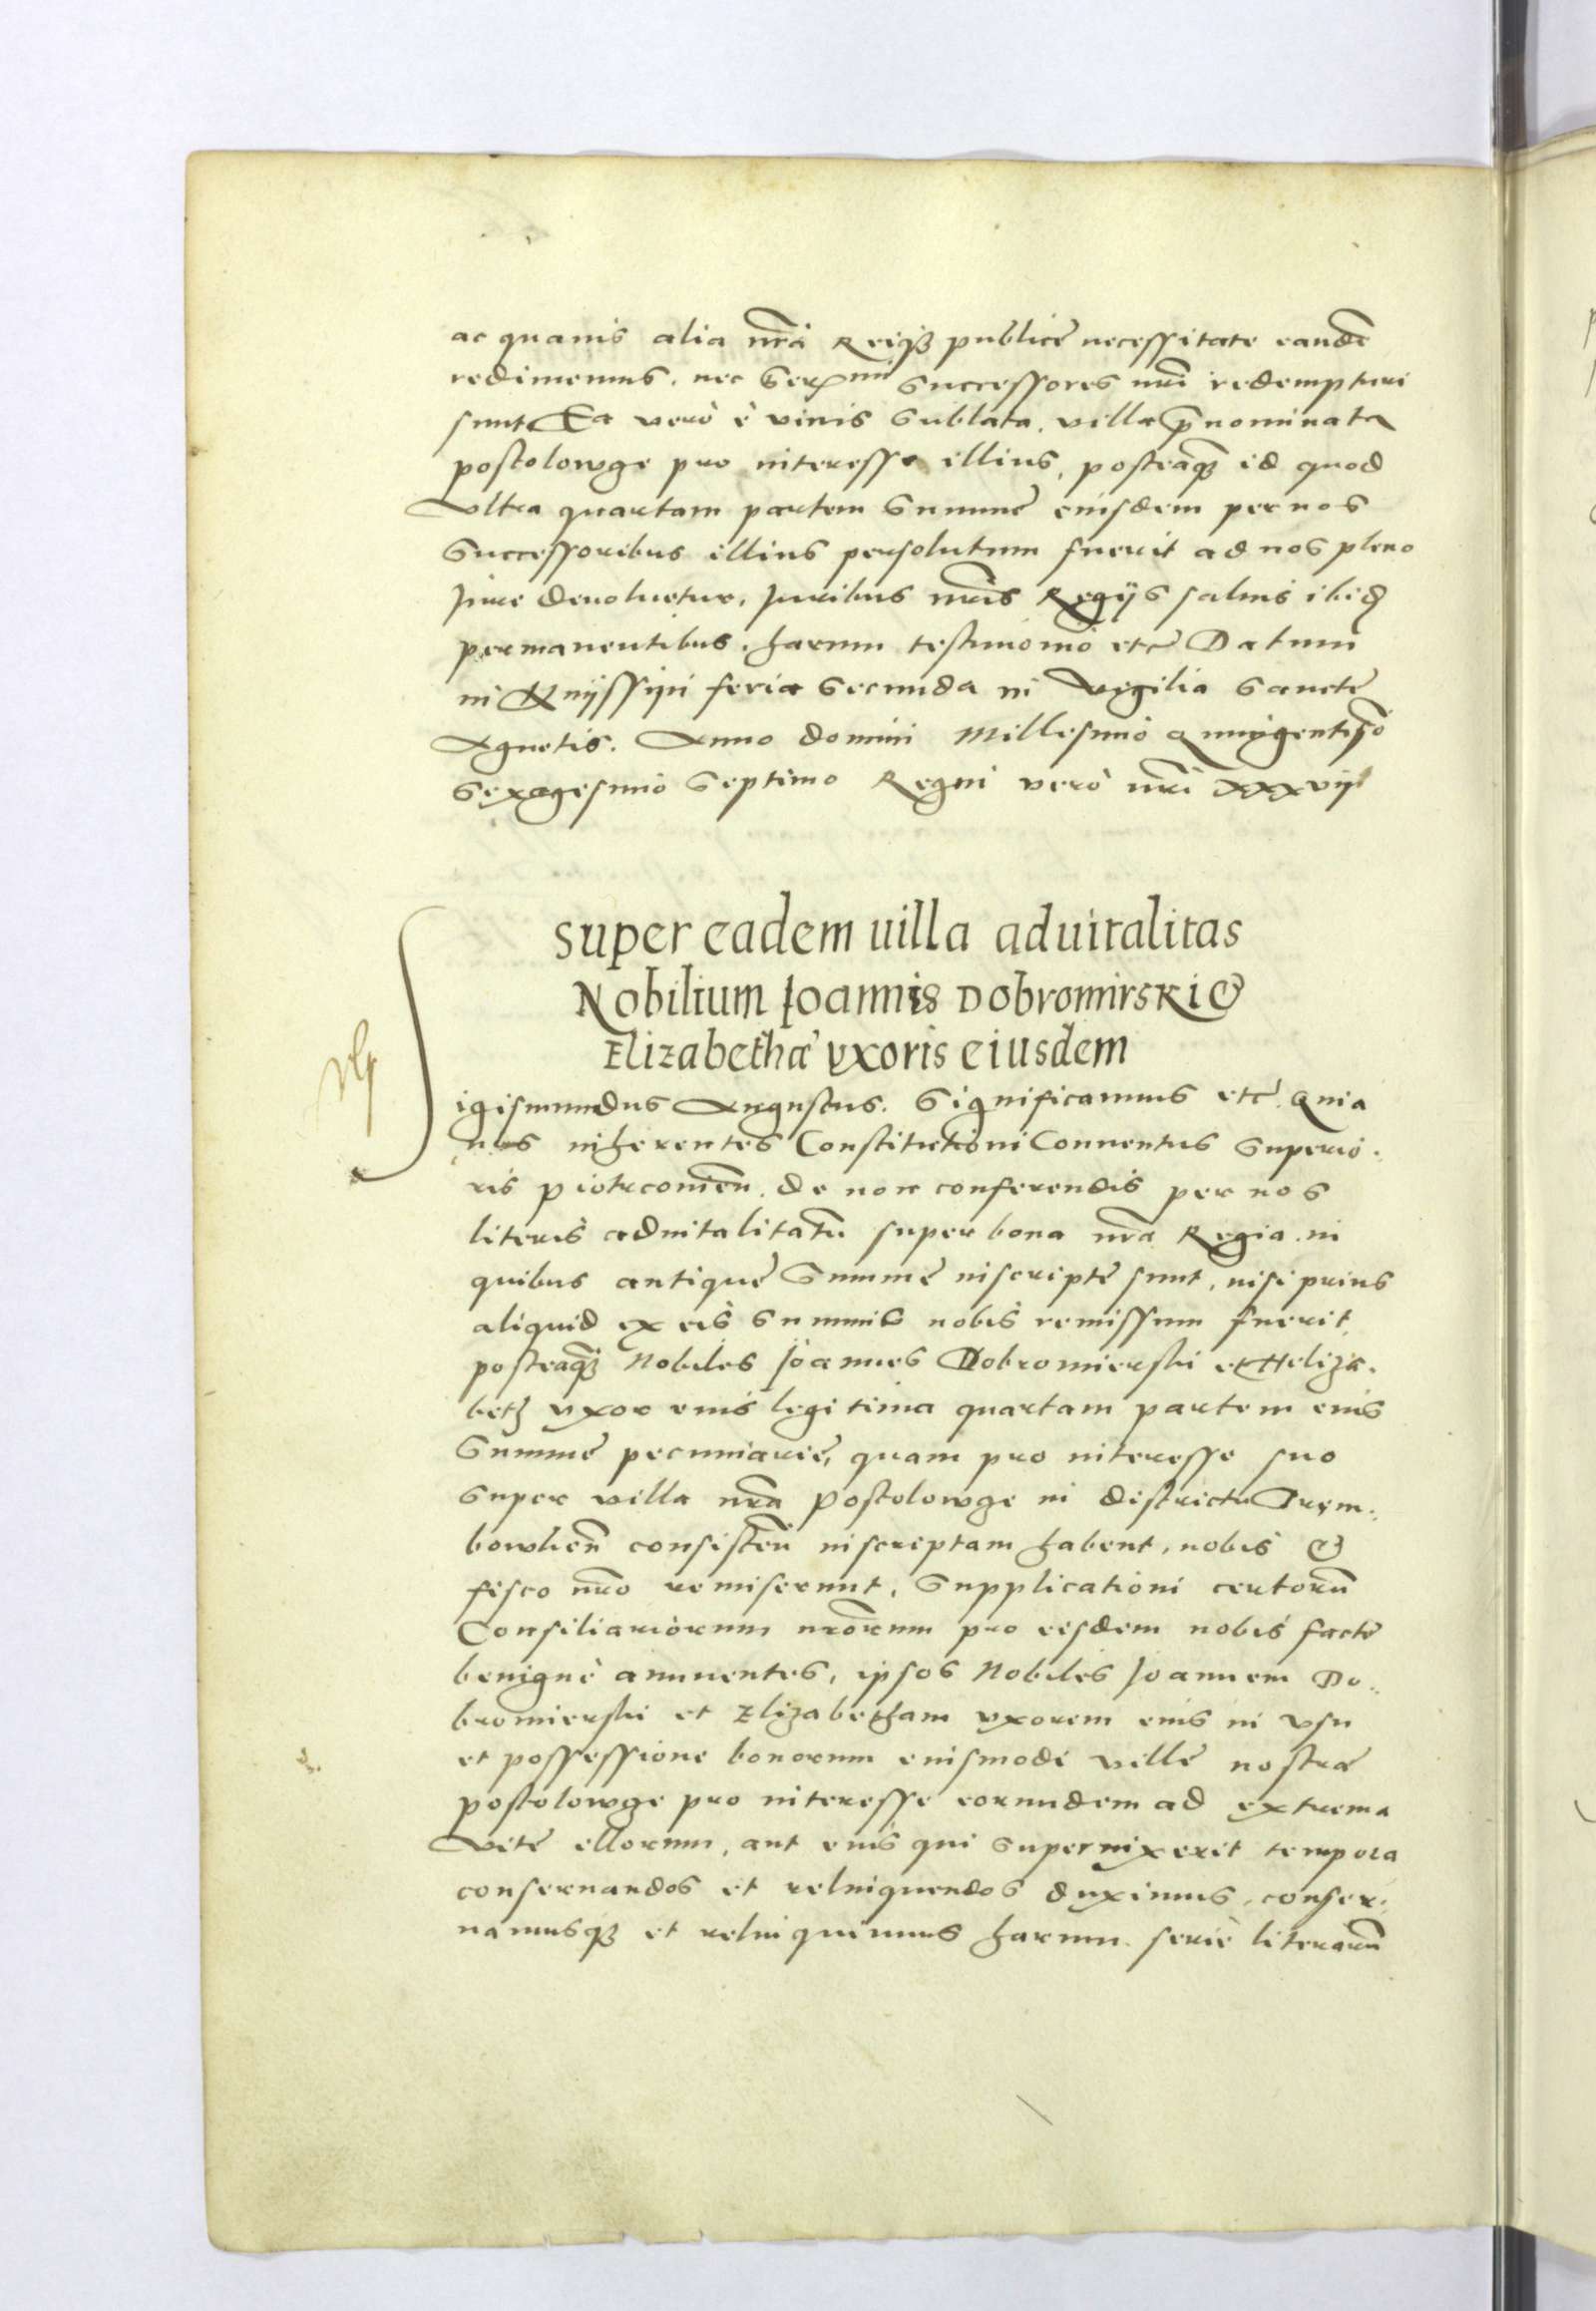 ac quauis alia nrã Reiq3 publicę necessitate eandẽ
redimemus, nec Ser^mi Successores nri̅ redempturi
sunt Ea verò è viuis sublata, villa p̅nominata
postolowge pro interesse illius, posteaq3 id quod
Vltra quartam partem Summę eiusdem per nos
Successoribus illius persolutum fuerit ad nos pleno
Iure deuoluetur, Iuribus nris̅ Regijs saluis ibid
permanentibus. harum testimonio etc̃ Datum
in Knijssijn feria Secunda in Vigilia Sanctę
Agnetis. Anno domini Millesimo Quingentiso̅
Sexagesimo Septimo Regni verò nri̅ xxxvij
super eadem uilla aduitalitas
Nobilium Joannis Dobromirski &
Elizabethæ vxoris eiusdem
Sigismundus Augustus. Significamus etc̃. Quia
nos inherentes Constitutioni Conuentus Superio.
ris piotrcouien̅. de non conferendis per nos
literis aduitalitatũ super bona nra̅ Regia. in
quibus antiquę Summę inscriptę sunt, nisi prius
aliquid ex eis Summis nobis remissum fuerit,
posteaq3 Nobiles Joannes Dobromierski et Heliza.
beth vxor eius legitima quartam partem eius
Summę pecuniarię, quam pro interesse suo
Super villa nra̅ Postolowge in districtu Trem.
bowlien̅ consisten̅ inscriptam habent, nobis &
fisco nro̅ remiserunt, Supplicationi certorũ
Consiliariorum nrorum̅ pro eisdem nobis factę
benignè annuentes, ipsos Nobiles Joannem Do..
bromierski et Elizabetham vxorem eius in vsu
et possessione bonorum eiusmodi villę nostræ
postolowge pro interesse eorundem ad extrema
Vitę illorum, aut eius qui Superuixerit tempora
conseruandos et relinquendos duximus, conser.
uamusq3 et relinquimus harum serie literarũ